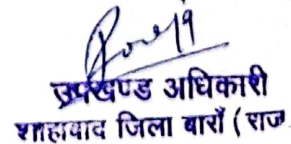 उपखण्ड अधिकारी
शाहावाद जिला बाराँ ( राज